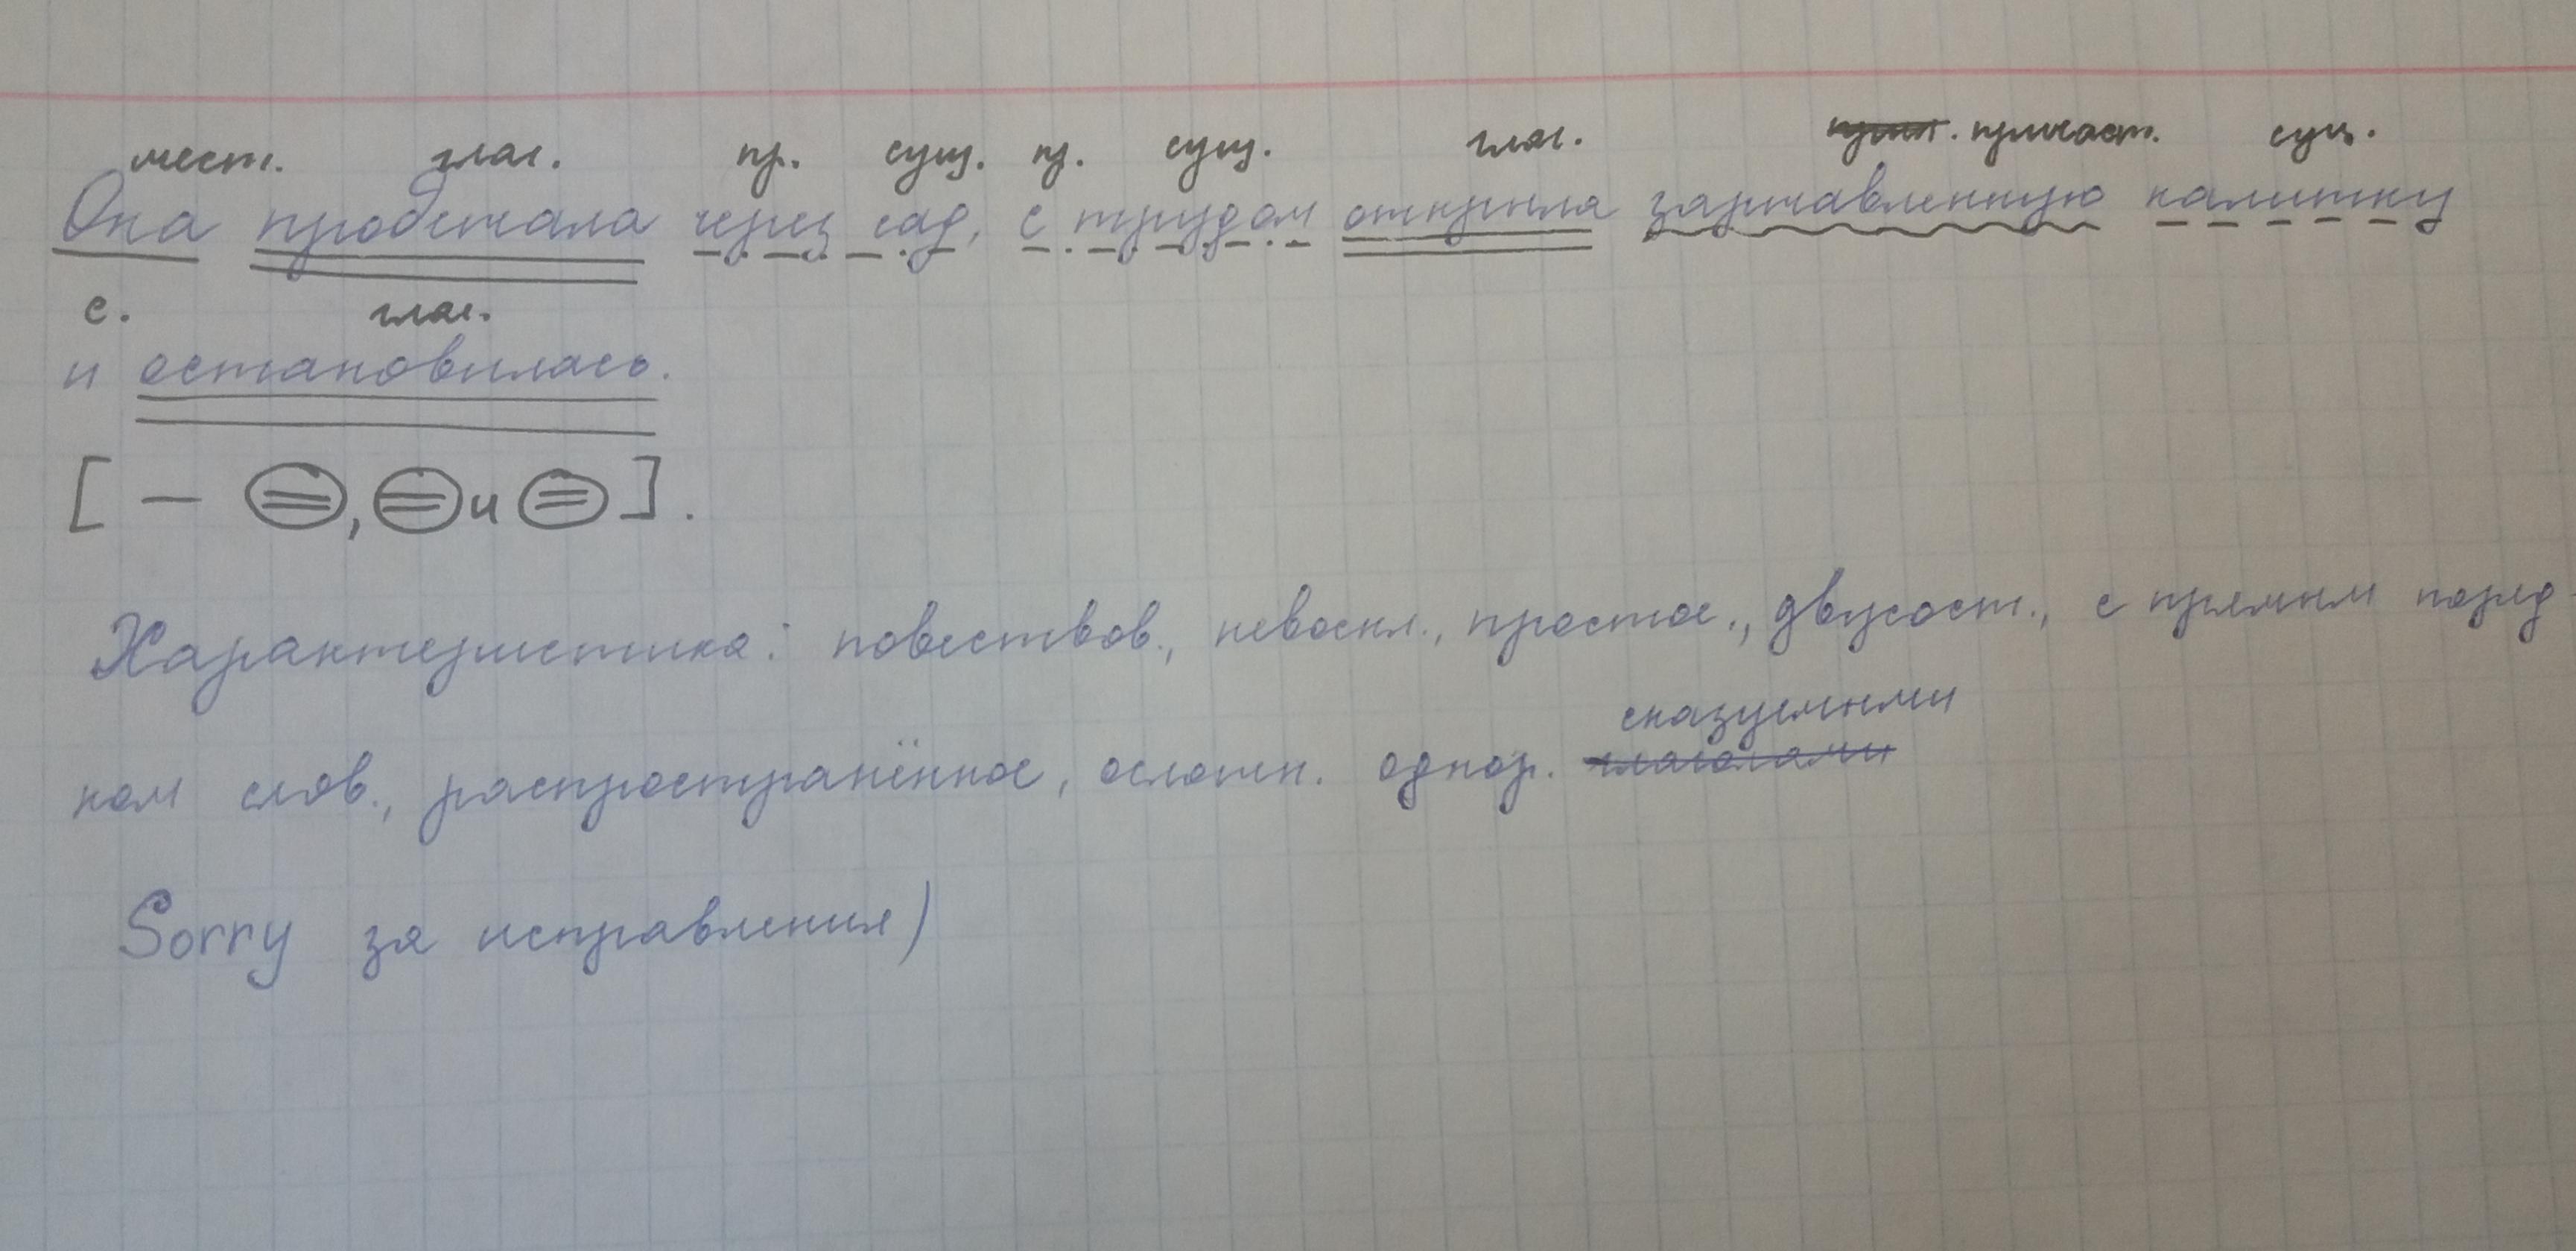 мест. глаг. пр. сущ. пр. сущ. глаг. прил. причаст. сущ.
Она пробежала через сад, с трудом открыла заржавленную калитку
с. глаг.
и остановилась.
[ — ⊜, ⊜ и ⊜ ].
Характеристика: повествов., невоскл., простое., двусост., с прямым поряд-
сказуемыми
ком слов., распространённое, осложн. однор. глаголами
Sorry за исправления)